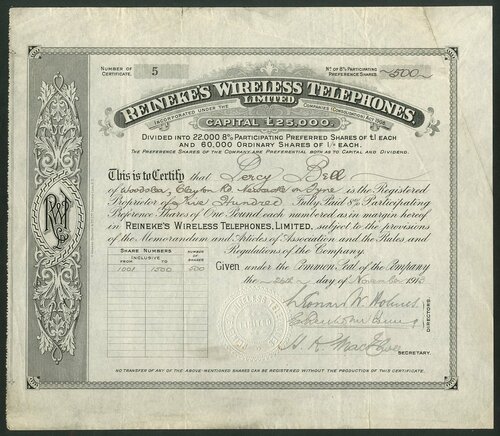 NUMBER OF CERTIFICATE. 5
No OF 8% PARTICIPATING PREFERENCE SHARES. 500
REINEKE'S WIRELESS TELEPHONES,
LIMITED
INCORPORATED UNDER THE COMPANIES (CONSOLIDATION) ACT 1908.
CAPITAL £25,000.
DIVIDED INTO 22,000 8% PARTICIPATING PREFERRED SHARES OF £1 EACH
AND 60,000 ORDINARY SHARES OF 1/- EACH.
THE PREFERENCE SHARES OF THE COMPANY ARE PREFERENTIAL BOTH AS TO CAPITAL AND DIVIDEND.
This is to Certify that Percy Bell
of Clayton Rd. Newcastle on Tyne is the Registered
Proprietor of Five Hundred Fully Paid 8% Participating
Preference Shares of One Pound each numbered as in margin hereof
in REINEKE'S WIRELESS TELEPHONES, LIMITED, subject to the provisions
of the Memorandum and Articles of Association and the Rules and
Regulations of the Company.
SHARE NUMBERS INCLUSIVE FROM TO
NUMBER OF SHARES
1001 1500 500
Given under the Common Seal of the Company
the 26th day of November 1910
DIRECTORS.
SECRETARY.
NO TRANSFER OF ANY OF THE ABOVE-MENTIONED SHARES CAN BE REGISTERED WITHOUT THE PRODUCTION OF THIS CERTIFICATE.